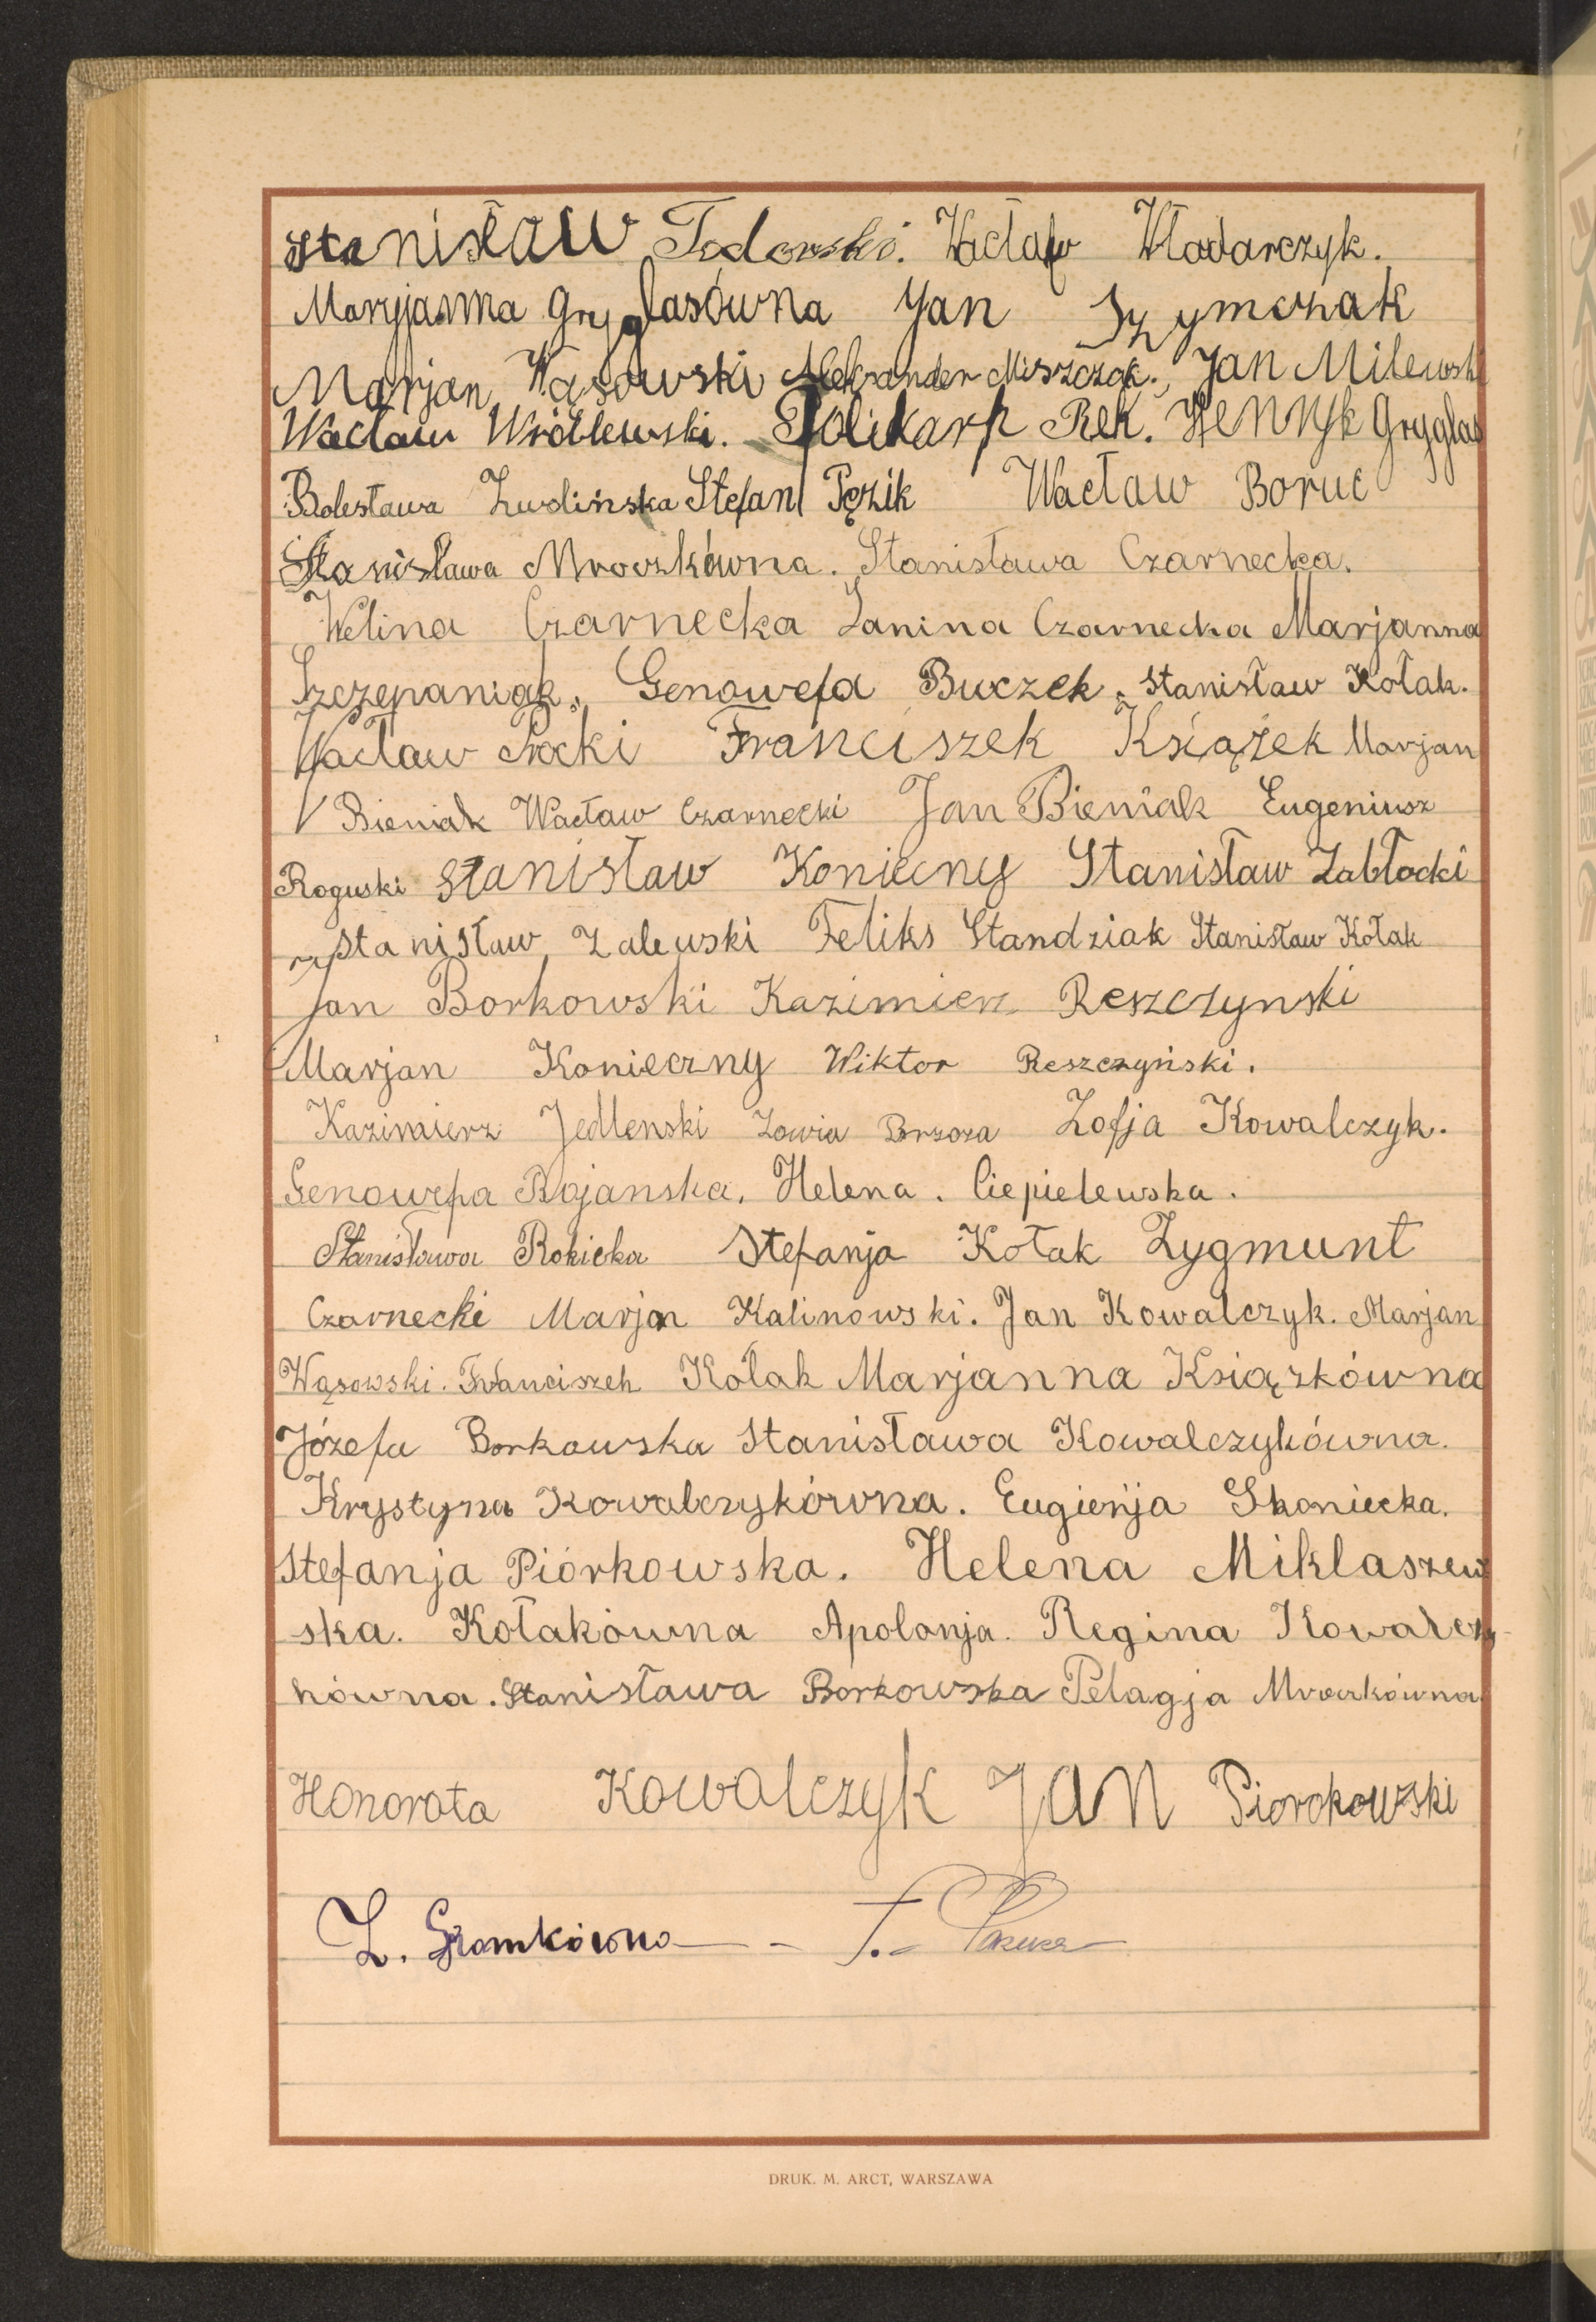 Stanisław Todorski. Wacław Włodarczyk.
Maryjanna Gryglasówna Jan Szymczak
Marjan Wąsowski Aleksander Miszczak. Jan Milewski
Wacław Wróblewski. Polikarp Rek. Henryk Gryglas
Bolesława Zwolińska Stefan Pęzik Wacław Boruc
Stanisława Mroczkówna. Stanisława Czarnecka.
Welina Czarnecka Janina Czarnecka Marjanna
Szczepaniak. Genowefa Buczek. Stanisław Kołak.
Wacław Franciszek Książek Marjan
Bieniak Wacław Czarnecki Jan Bieniak Eugeniusz
Roguski Stanisław Koniecny Stanisław Zabłocki
Stanisław Zalewski Feliks Standziak Stanisław Kołak
Jan Borkowski Kazimierz Reszczynski
Marjan Konieczny Wiktor Reszczyński.
Kazimierz Jedlenski Zowia Brzoza Zofja Kowalczyk.
Genowefa Bojanska. Helena. Ciepielewska.
Stanisława Rokicka Stefanja Kołak Zygmunt
Czarnecki Marjan Kalinowski. Jan Kowalczyk. Marjan
Wąsowski. Franciszek Kołak Marjanna Książkówna
Józefa Borkowska Stanisława Kowalczykówna.
Krystyna Kowalczykówna. Eugienja Skoniecka.
Stefanja Piórkowska. Helena Miklaszew
ska. Kołakówna Apolonja. Regina Kowalczy-
kówna. Stanisława Borkowska Pelagja Mroczkówna
Honorata Kowalczyk Jan Piorokowski
Z. Gromkówna
DRUK. M. ARCT, WARSZAWA